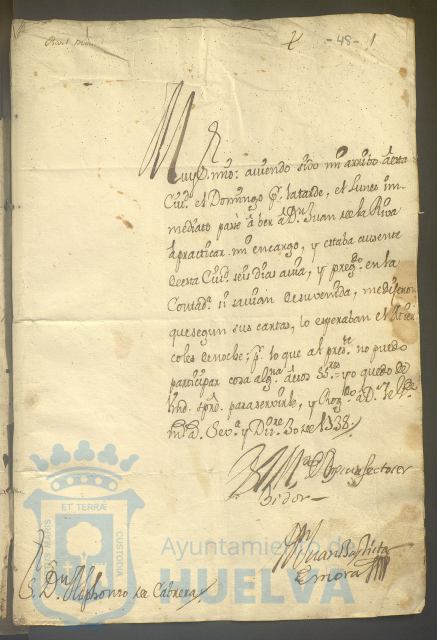 -48-
Muy S. mio: aviendo sido mi arrivo à esta
Ciud. el Domingo p. la tarde, el Lunes im-
mediato pasè à ver à Dn. Juan de la Riva
à practicar mi encargo, y estaba ausente
de esta Ciud. seis dias avia, y pregte. en la
Contadª. si savian de su venida, me dijeron
que segun sus cartas, lo esperaban el Mier-
coles de noche; p. lo que al preste. no puedo
participar cosa algna. à esos SSres. yo quedo de
Vmd. spre. para servirle, y Rogdo. à D. 
ms. as. Sevª. y Dizre. 30 de 1738
BLMa. de Vm su afecto ser
bidor
Juan Baptista
de Mora
S. Dn. Alphonso de Cabrera
ET TERRÆ
CUSTODIA
MARIS
Ayuntamiento de
HUELVA